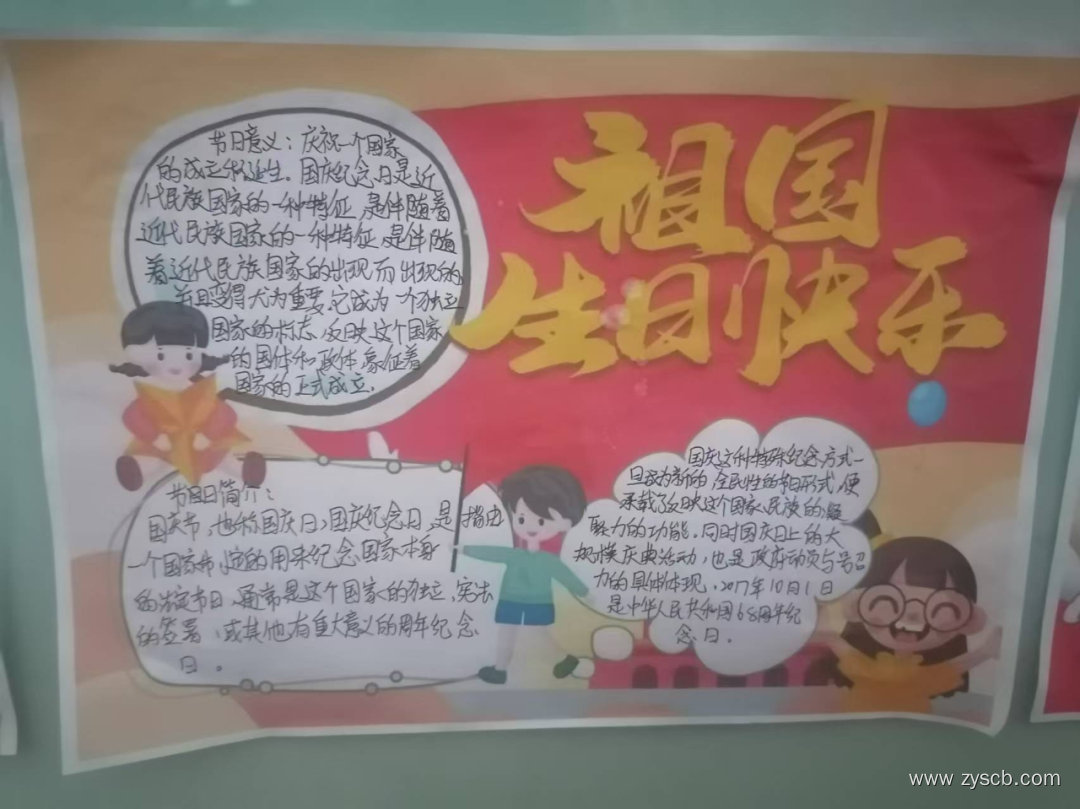 祖国
生日快乐
节日意义：庆祝一个国家
的成立和诞生。国庆纪念日是近
代民族国家的一种特征，是伴随着
近代民族国家的一种特征，是伴随
着近代民族国家的出现而出现的，
并且变得尤为重要，它成为一个独立
国家的标志，反映这个国家
的国体和政体，象征着
国家的正式成立.
节日简介：
国庆节，也称国庆日，国庆纪念日，是指由
一个国家制定的用来纪念国家本身
的法定节日，通常是这个国家的独立，宪法
的签署，或其他有重大意义的周年纪念
日。
国庆这种特殊纪念方式一
旦成为新的，全民性的节日形式，便
承载了反映这个国家、民族的凝
聚力的功能。同时国庆日上的大
规模庆典活动，也是政府动员与号召
力的具体体现，2017年10月1日
是中华人民共和国68周年纪
念日。
www.zyscb.com